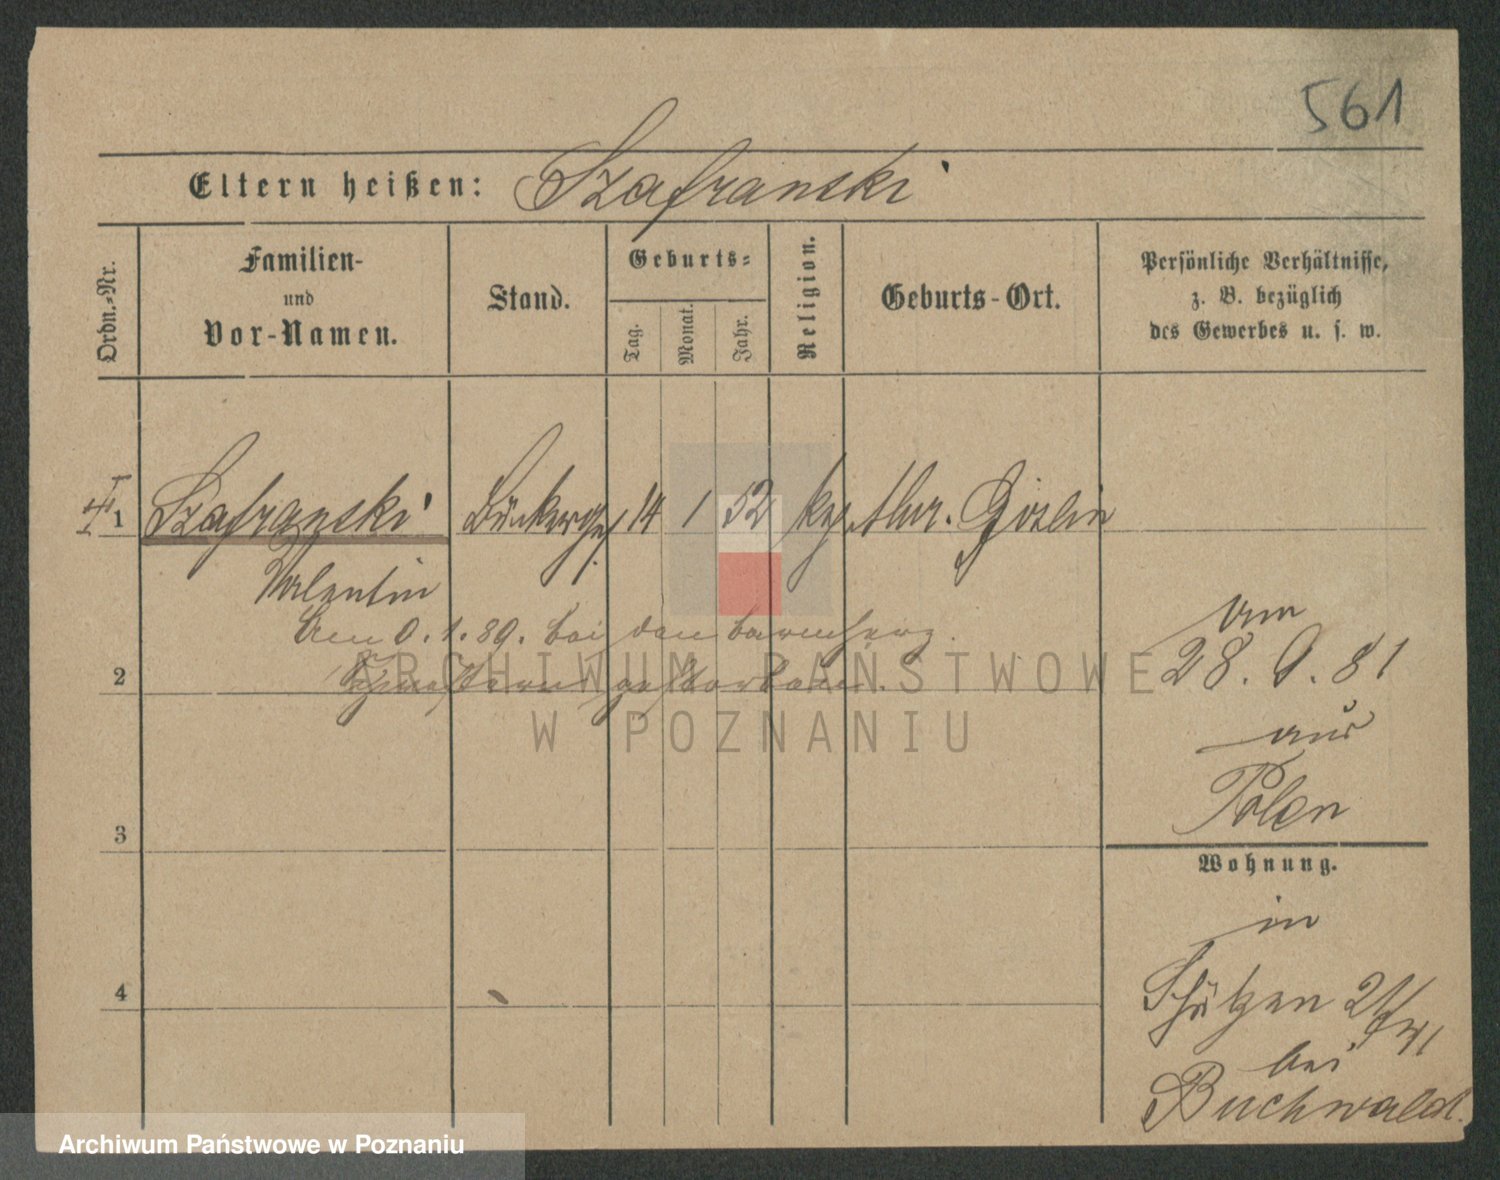 561
Eltern heißen: Szafranski
Ordn.-Nr.
Familien-
und
Vor-Namen.
Stand.
Geburts-
Tag.
Monat.
Jahr.
Religion.
Geburts-Ort.
Persönliche Verhältnisse,
z. B. bezüglich
des Gewerbes u. s. w.
1 Szafranski 14 1 52 Goslin
Valentin
bei den barmherz.
2 Schwestern gestorben.
am
28. 9. 81
aus
Polen
3
Wohnung.
in
4
Schützen 21
bei
Buchwald.
ARCHIWUM PAŃSTWOWE
W POZNANIU
Archiwum Państwowe w Poznaniu